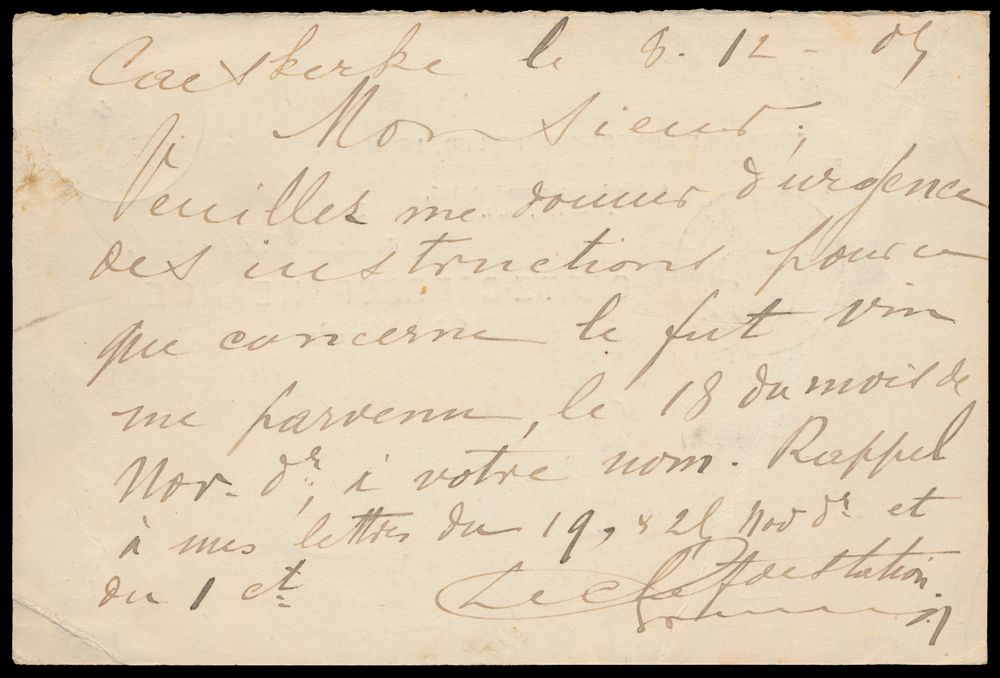 Caeskerke le 8. 12 - 05
Monsieur,
Veuillez me donner d'urgence
des instructions pour ce
que concerne le fut vin
me parvenu, le 18 du mois de
Nov. dr, à votre nom. Rappel
à mes lettres du 19, & 28 Nov dr et
du 1 ct.
Le Chef de Station